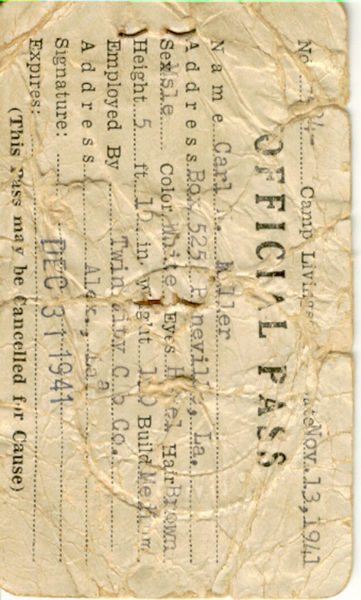 No. Camp Livings Date Nov. 13, 1941
OFFICIAL PASS
Name Carl A. Miller
Address Box 525, Pineville, La.
Sex Male Color White Eyes Hazel Hair Brown
Height 5 ft 10 in Weight Build Medium
Employed By Twin City C.b Co.
Address Alex., La
Signature:
Expires: DEC 31 1941
(This Pass may be Cancelled for Cause)